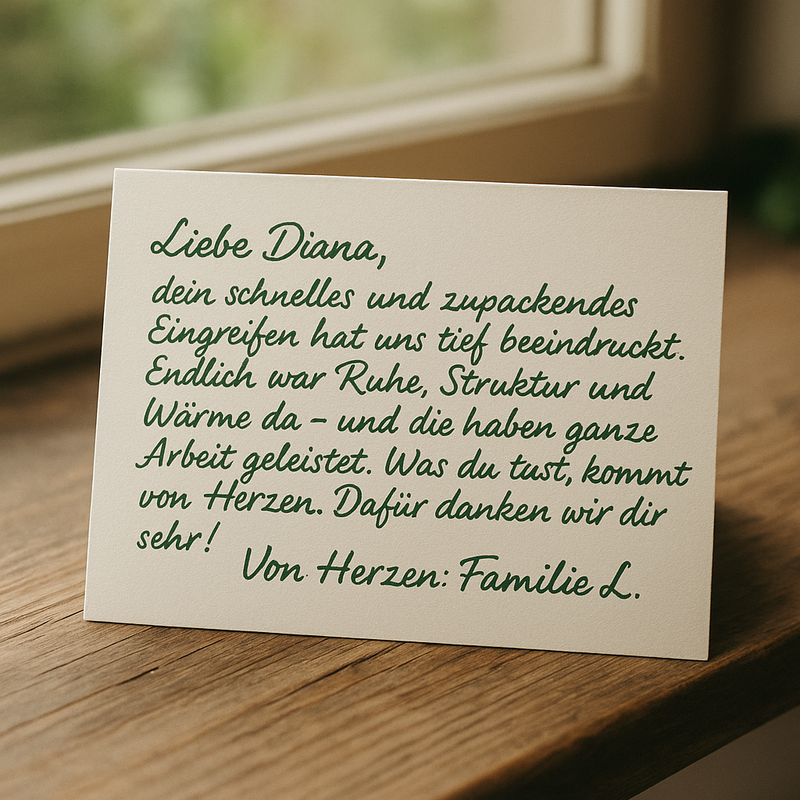 Liebe Diana,
dein schnelles und zupackendes
Eingreifen hat uns tief beeindruckt.
Endlich war Ruhe, Struktur und
Wärme da – und die haben ganze
Arbeit geleistet. Was du tust, kommt
von Herzen. Dafür danken wir dir
sehr!
Von Herzen: Familie L.